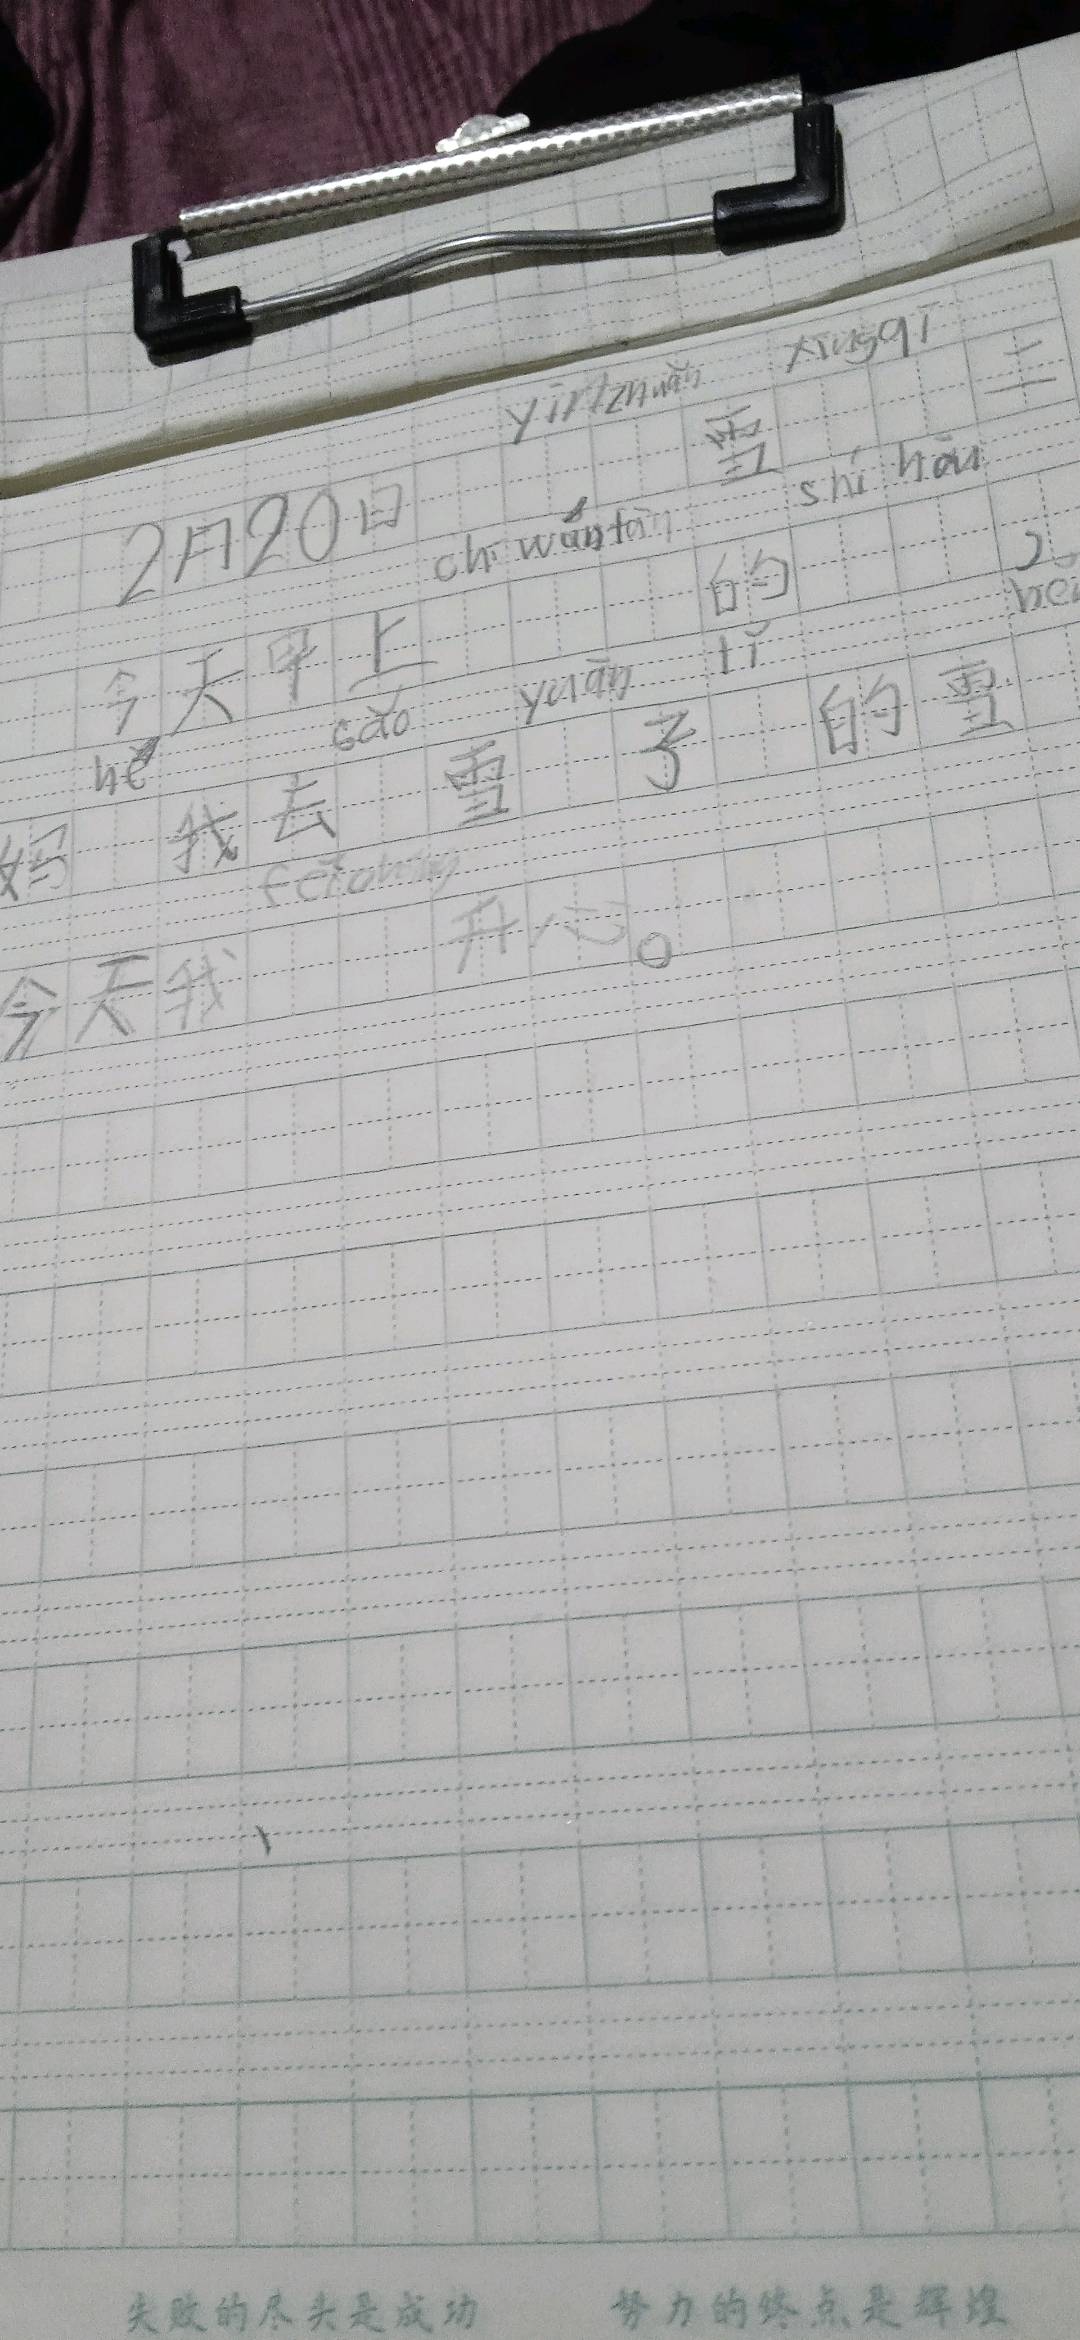 2月20日 yīn zhuǎn 雪 xīngqī 三
今天早上 chī wán fàn 的 shí hòu
妈 hé 我去 sǎo 雪 yuàn 子 lǐ 的雪
今天我 fēicháng 开心。
失败的尽头是成功 努力的终点是辉煌